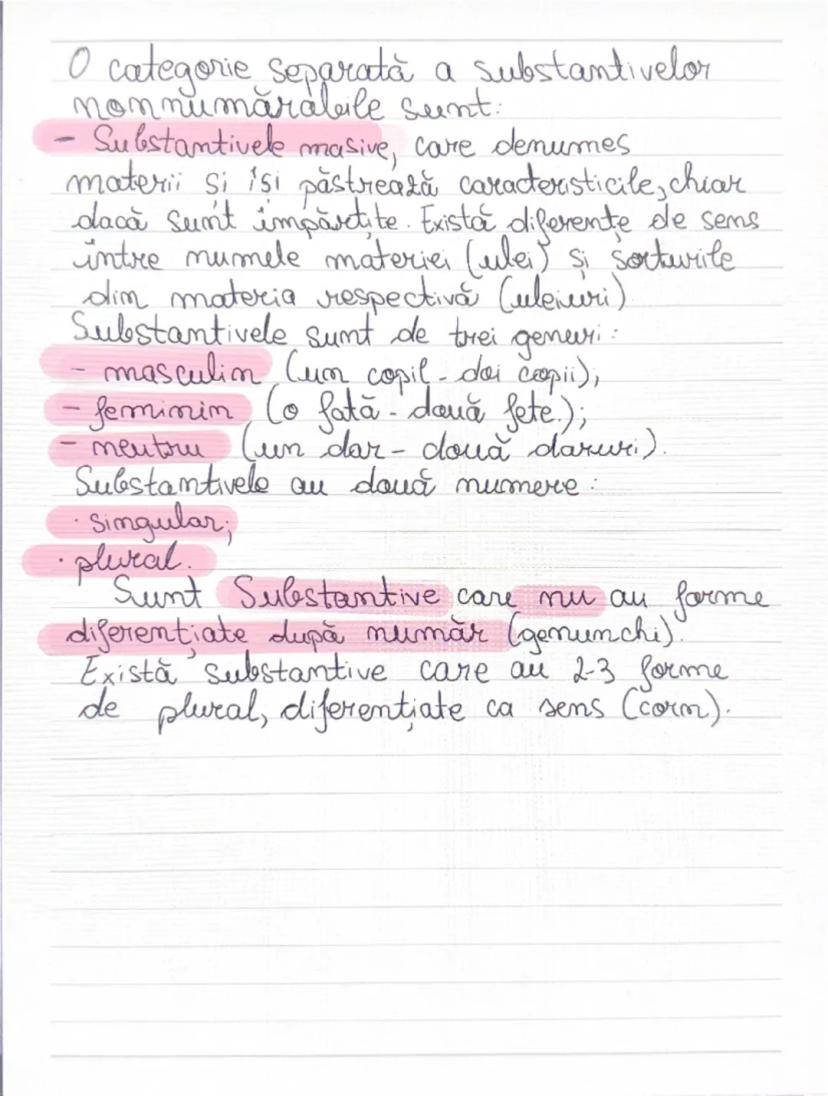 O categorie separată a substantivelor
nonnumărabile sunt:
- Substantivele masive, care denumes
materii și își păstrează caracteristicile, chiar
dacă sunt împărțite. Există diferențe de sens
între numele materiei (ulei) și sorturile
din materia respectivă (uleiuri)
Substantivele sunt de trei genuri:
- masculin (un copil - doi copii);
- feminin (o fată - două fete.);
- neutru (un dar - două daruri).
Substantivele au două numere:
· singular;
· plural.
Sunt Substantive care nu au forme
diferențiate după număr (genunchi).
Există substantive care au 2-3 forme
de plural, diferențiate ca sens (corn).